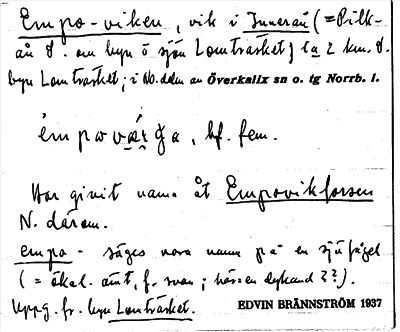 Empo-viken, vik i Innerån (= Pilk-
ån S. om byn o sjön Lomträsket) ca 2 km. S.
byn Lomträsket; i No. delen av Överkalix sn o. tg Norrb. l.
empová, bf. fem.
Har givit namn åt Empovikforsen
N. därom.
empo - säges vara namn på en sjöfågel
(= ökal. amt, f. svan; här en dykand??).
Uppg. fr. byn Lomträsket.
EDVIN BRÄNNSTRÖM 1937